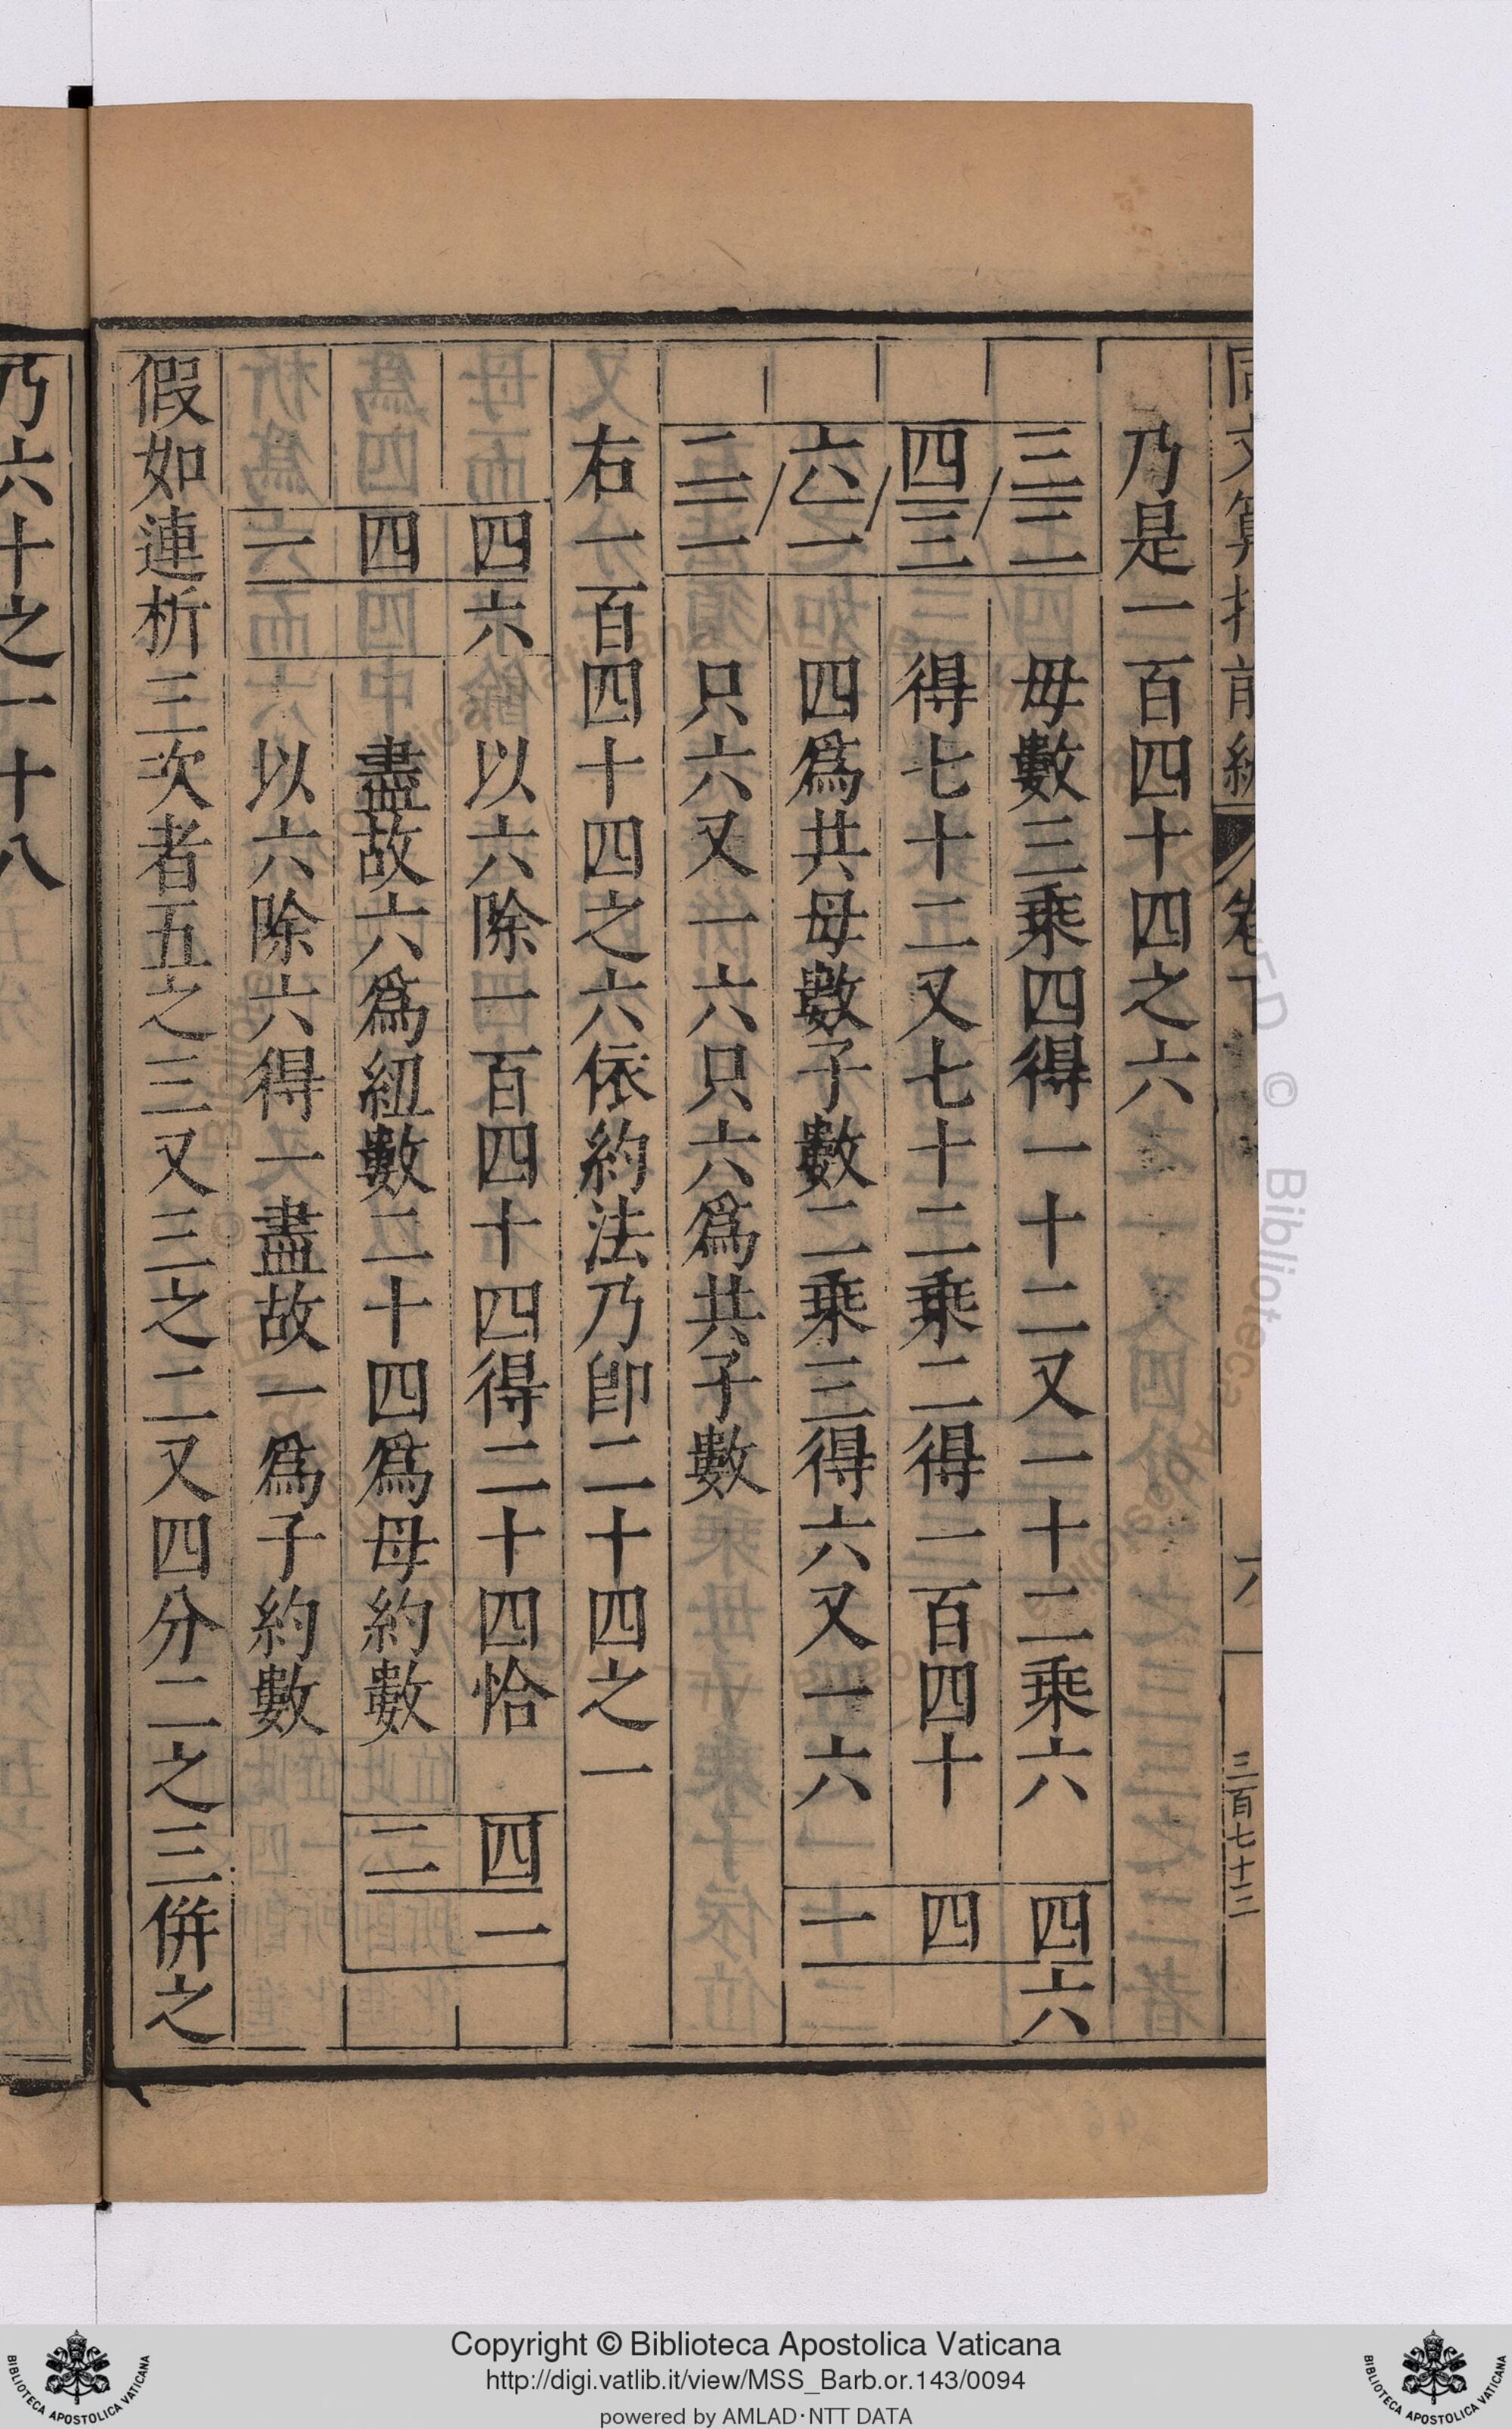 同文算指前編 卷下 六 三百七十三
乃是一百四十四之六
三二 母數三乘四得一十二又一十二乘六 四六
四三 得七十二又七十二乘二得一百四十 四
六一 四爲共母數子數二乘三得六又一六 一
二一 只六又一六只六爲共子數
右一百四十四之六依約法乃卽二十四之一
四六 以六除一百四十四得二十四恰 四一
四 盡故六爲紐數二十四爲母約數 二
一 以六除六得一盡故一爲子約數
假如連析三次者五之三又三之二又四分二之三併之
乃六十之一十八
Copyright © Biblioteca Apostolica Vaticana
http://digi.vatlib.it/view/MSS_Barb.or.143/0094
powered by AMLAD·NTT DATA
BIBLIOTECA APOSTOLICA VATICANA
BIBLIOTECA APOSTOLICA VATICANA